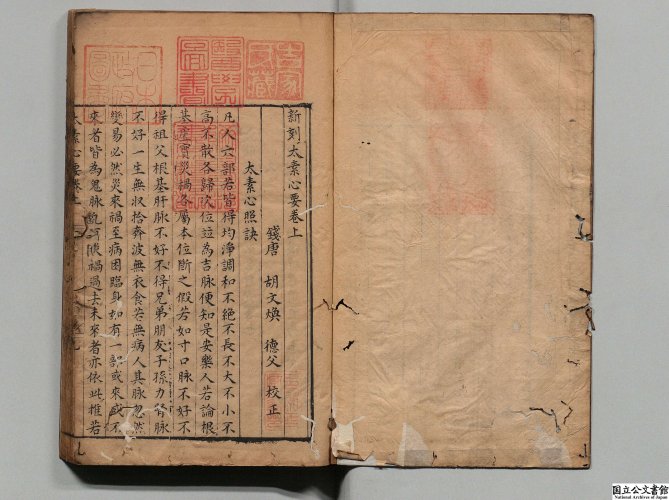 新刻太素心要卷上
錢唐 胡文煥 德父 校正
太素心照訣
凡人六部若皆得均淨調和不絕不長不大不小不
高不散各歸次位並為吉脉便知是安樂人若論根
基虛實災禍各屬本位斷之假若如寸口脉不好不
得祖父根基肝脉不好不得兄弟朋友子孫力腎脉
不好一生無收拾奔波無衣食若無病人其脉忽然
變易必然災來禍至病困臨身如有一部或來或不
來者皆為鬼脉 禍過去未來者亦依此推若
太素心要卷上
日本
政府
圖書
醫學
圖書
多紀
氏藏
国立公文書館
National Archives of Japan